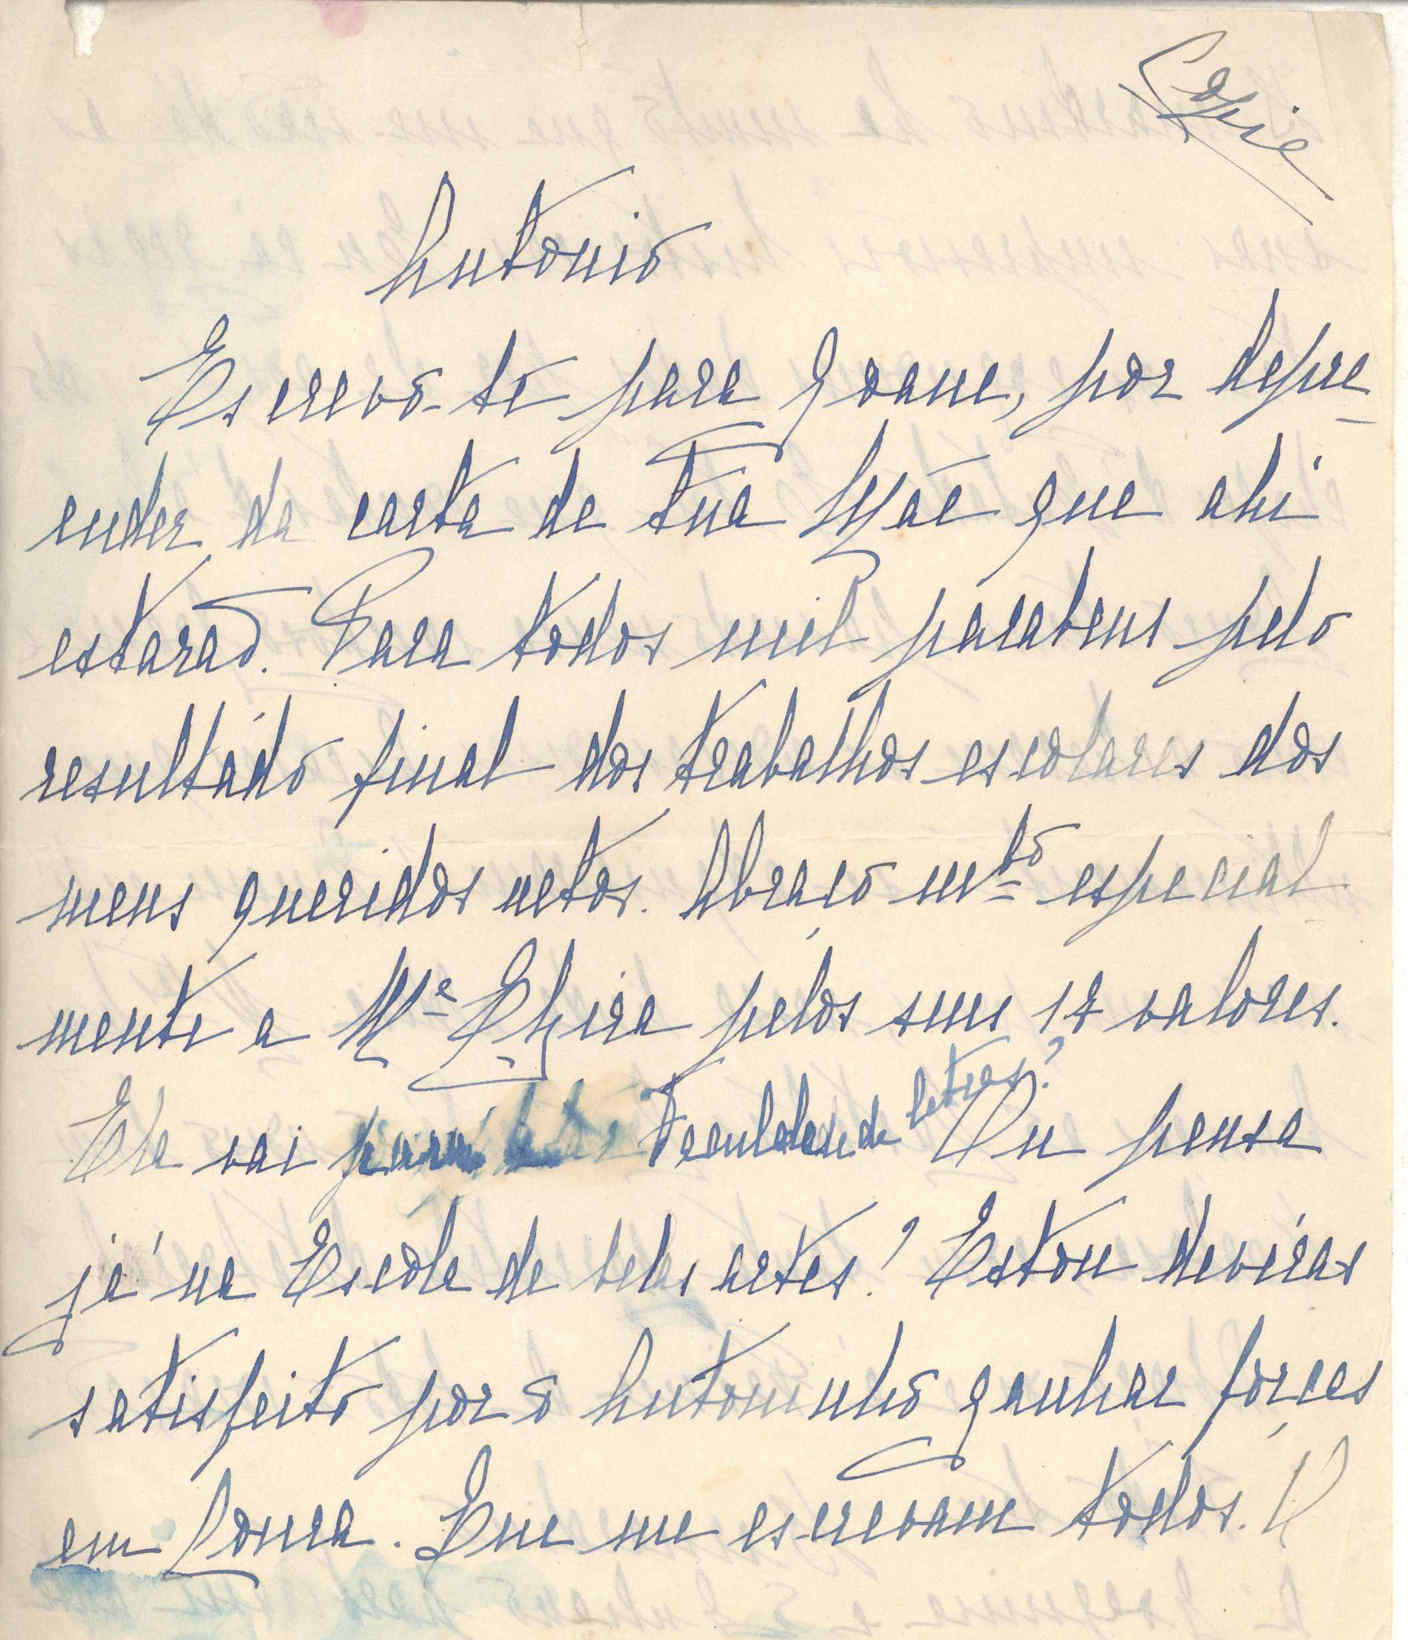 Copie
Antonio
Escrevo-te para Joane, por depre-
ender da carta de tua Mãe que ahi
estarão. Para todos mil parabens pelo
resultado final dos trabalhos escolares dos
meus queridos netos. Abraço mto especial
mente a Ma Elzira pelos seus valores.
Ela vai para Faculdade de letras? Ou pensa
já na Escola de belas artes? Estou devéras
satisfeito por o Antoninho ganhar forças
em Lousa. Que me escrevam todos.